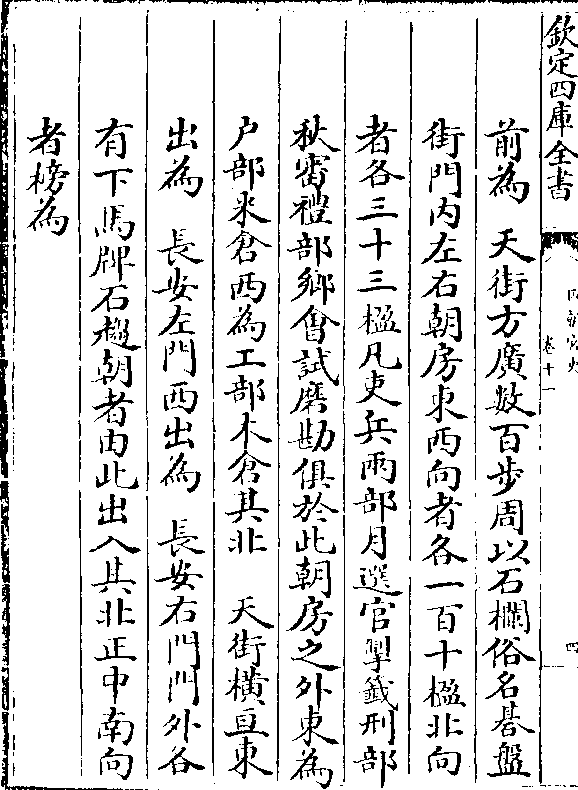 欽定四庫全書
卷十一
四
前為　天街方廣數百步周以石欄俗名棊盤
街門内左右朝房東西向者各一百十楹北向
者各三十三楹凡吏兵兩部月選官掣籖刑部
秋審禮部鄉會試磨勘俱於此朝房之外東為
户部米倉西為工部木倉其北　天街橫亘東
出為　長安左門西出為　長安右門門外各
有下馬牌石趨朝者由此出入其北正中南向
者榜為